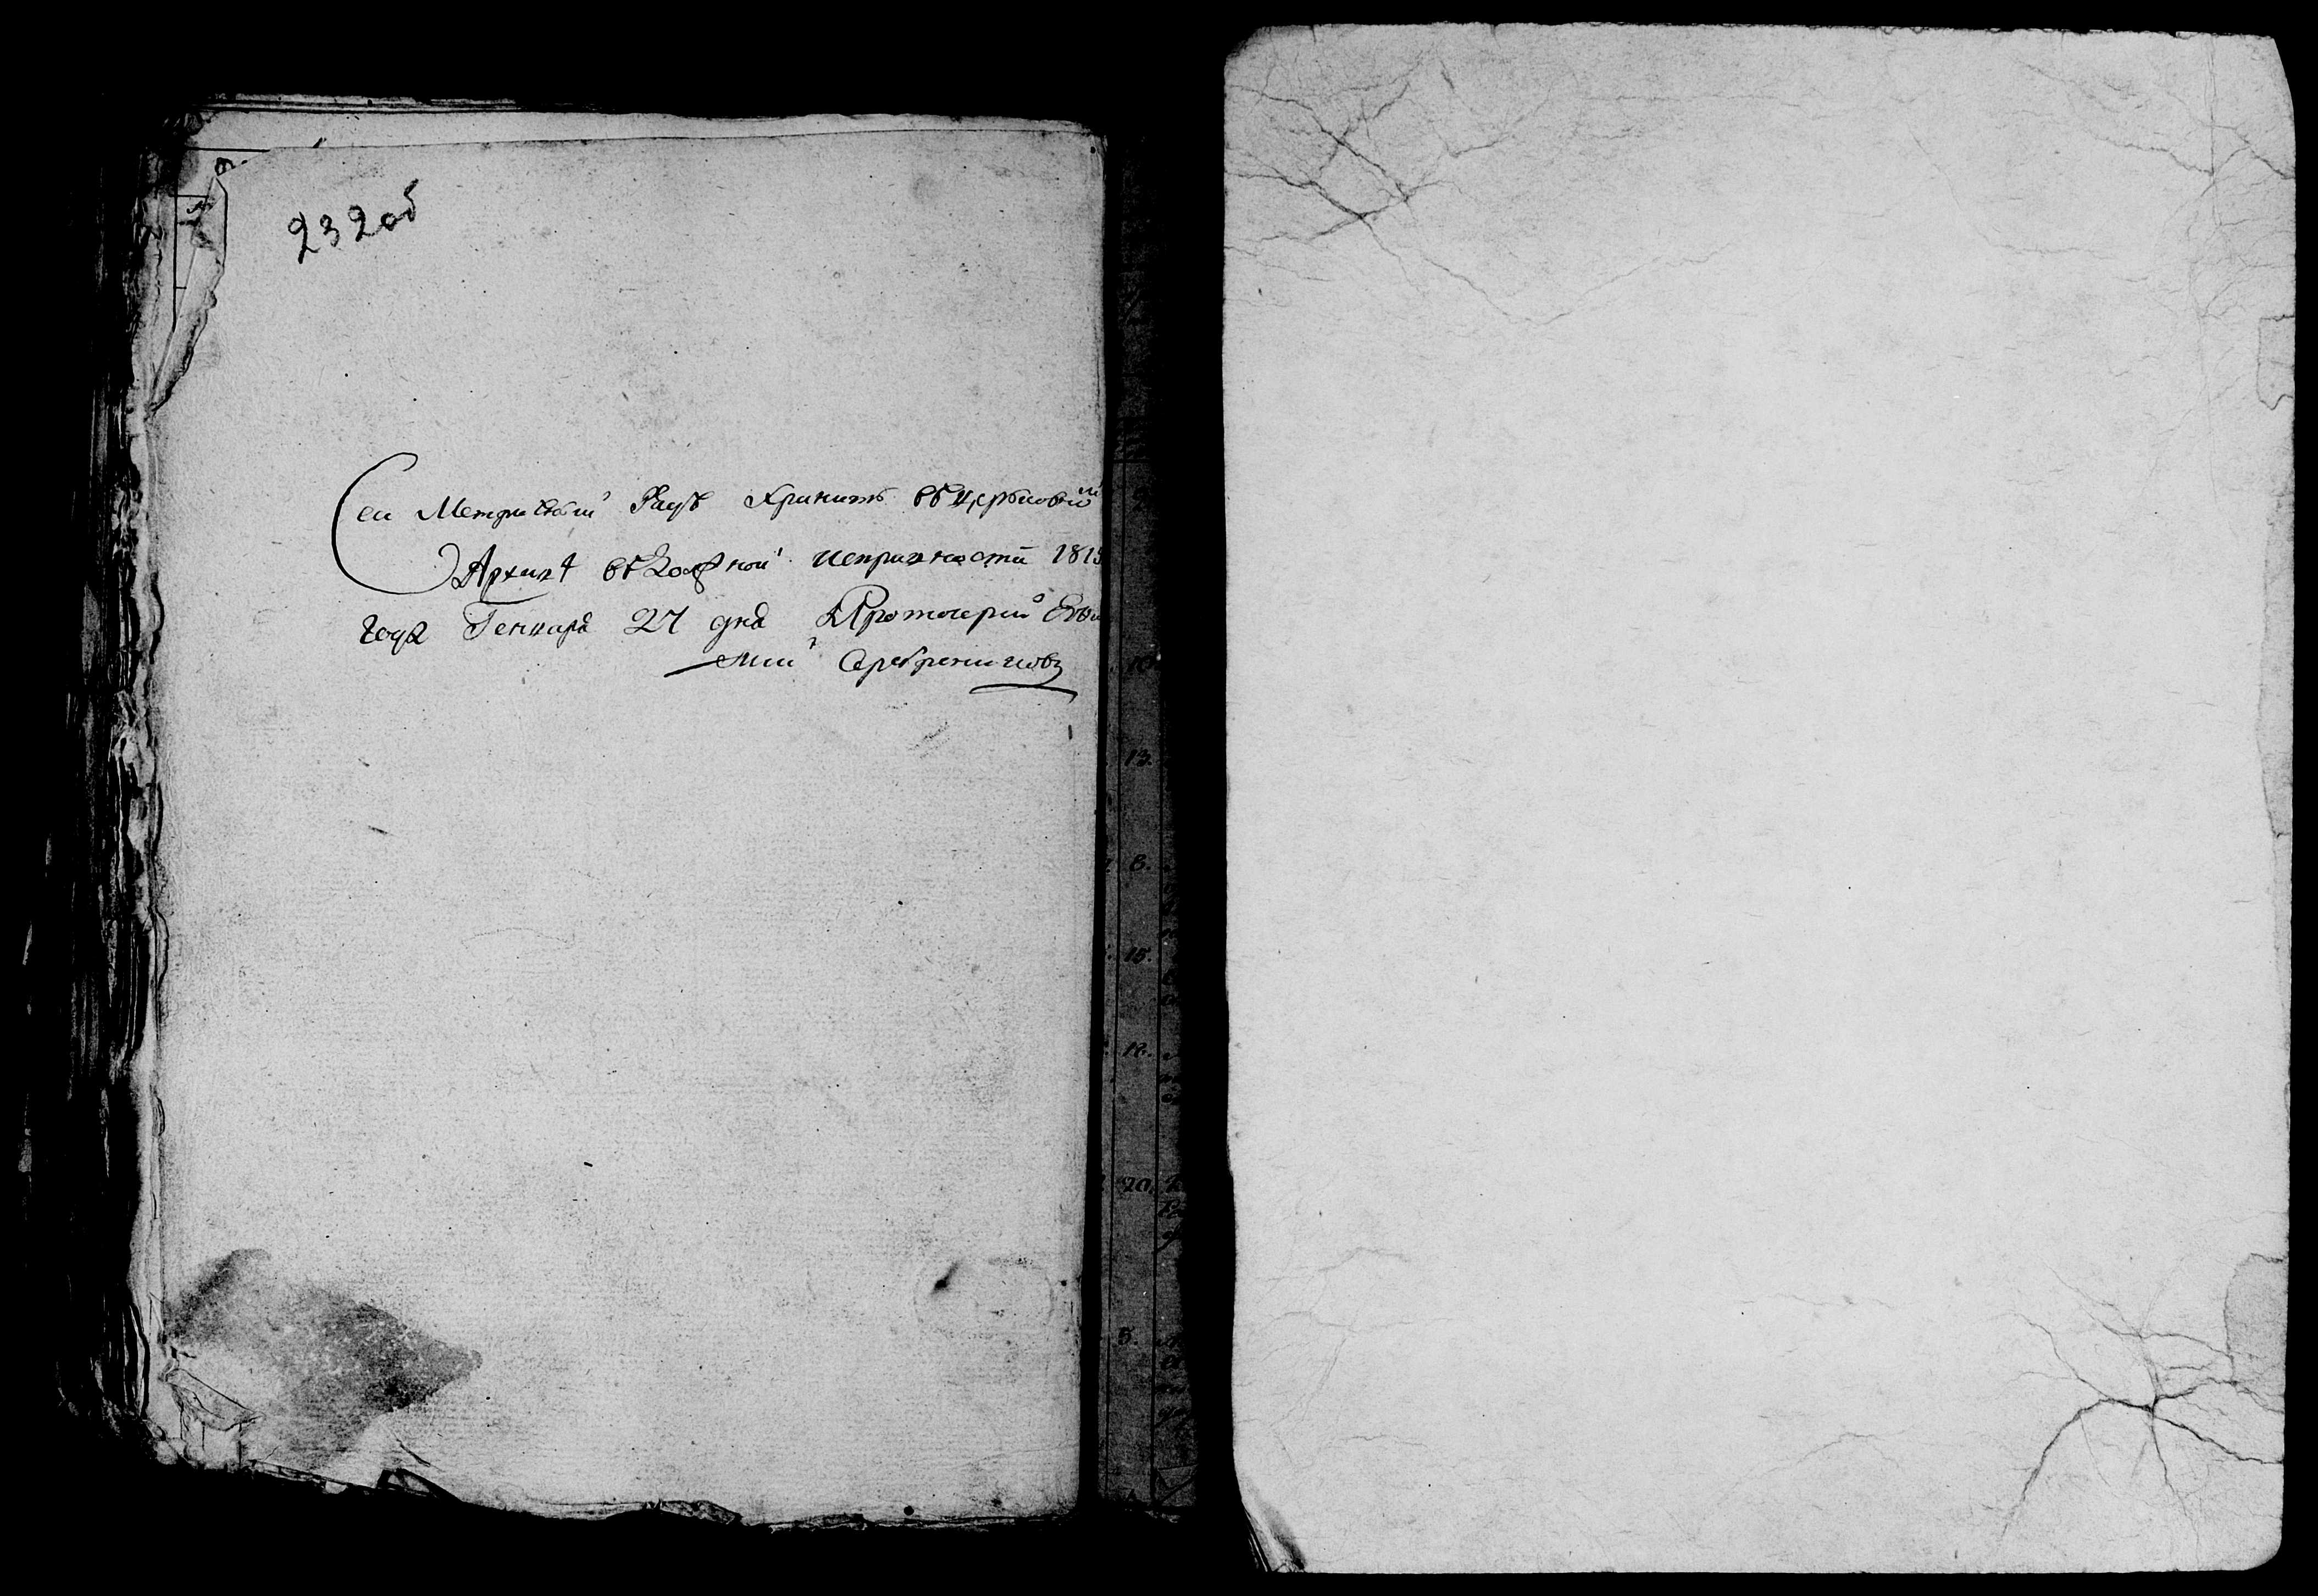 232об
Сей Метрический Рядъ Хранить въ Церьковной
Архивѣ въ должной исправности 1815
года Генваря 27 дня Протоиерей Евѳи
мий Серебрениковъ
13.
8.
15.
12.
20.
5.